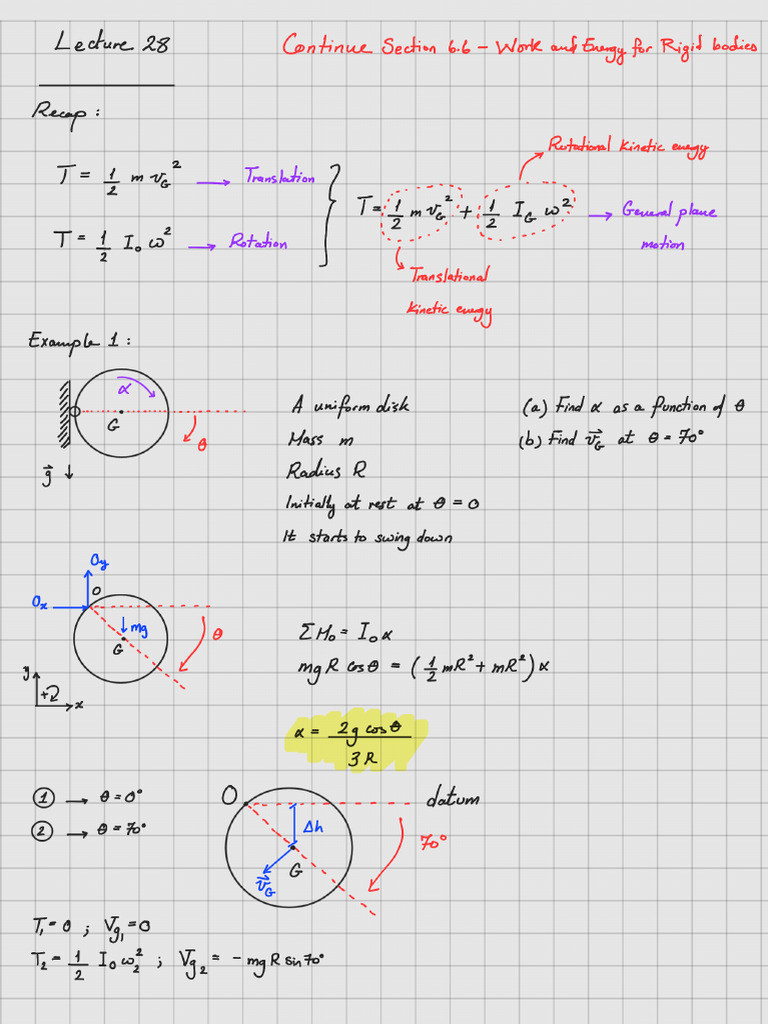 Lecture 28
Continue Section 6.6 - Work and Energy for Rigid bodies
Recap :
T = 1/2 m v_G² → Translation
T = 1/2 I_O ω² → Rotation
T = 1/2 m v_G² + 1/2 I_G ω² → General plane
motion
Rotational kinetic energy
Translational
kinetic energy
Example 1 :
α
G
θ
g⃗ ↓
A uniform disk
Mass m
Radius R
Initially at rest at θ = 0
It starts to swing down
(a) Find α as a function of θ
(b) Find v⃗_G at θ = 70°
Oy
Ox
O
mg
G
θ
y
+
x
ΣM_O = I_O α
mgR cosθ = (1/2 mR² + mR²) α
α = 2g cosθ / 3R
① → θ = 0°
② → θ = 70°
O
datum
Δh
70°
G
v⃗_G
T₁ = 0 ; Vg₁ = 0
T₂ = 1/2 I_O ω₂² ; Vg₂ = - mg R sin 70°